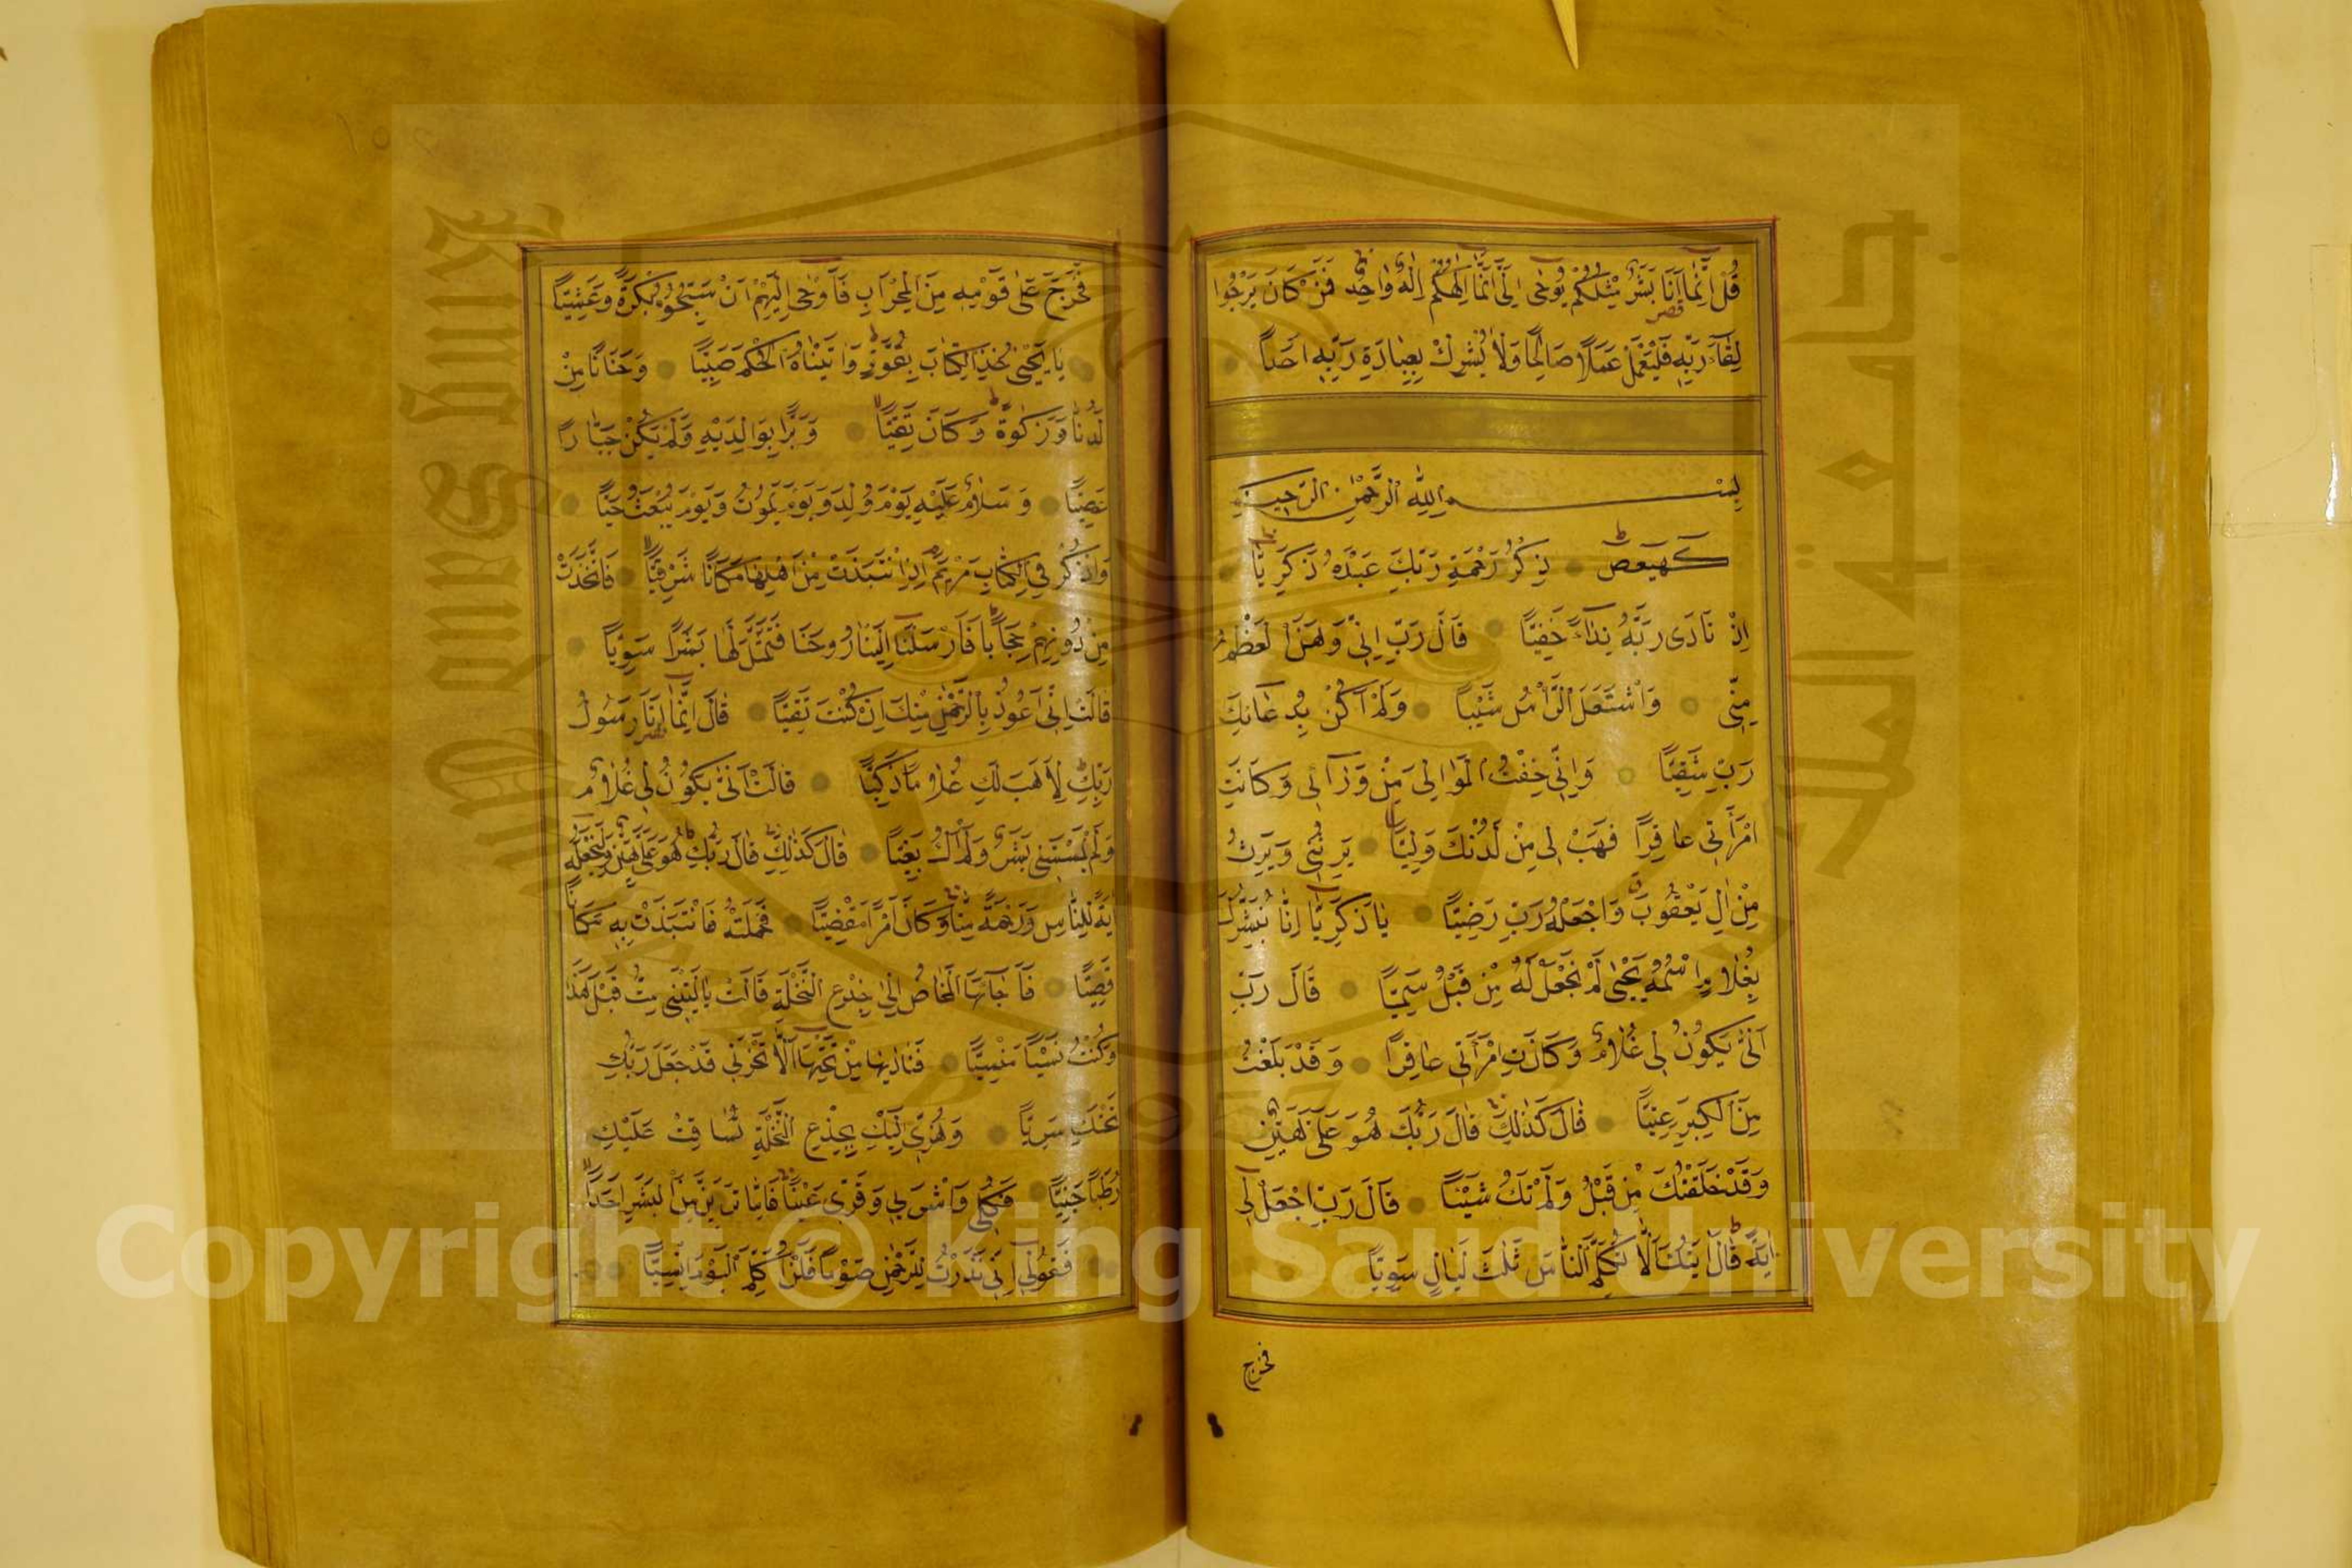 قُلْ اِنَّمَا اَنَا بَشَرٌ مِثْلُكُمْ يُوحٰى اِلَىَّ اَنَّمَا اِلٰهُكُمْ اِلٰهٌ وَاحِدٌ فَمَنْ كَانَ يَرْجُوا
لِقَاءَ رَبِّهِ فَلْيَعْمَلْ عَمَلًا صَالِحًا وَلَا يُشْرِكْ بِعِبَادَةِ رَبِّهِ اَحَدًا
بِسْمِ اللهِ الرَّحْمٰنِ الرَّحِيمِ
كهيعص ذِكْرُ رَحْمَةِ رَبِّكَ عَبْدَهُ زَكَرِيَّا
اِذْ نَادَى رَبَّهُ نِدَاءً خَفِيًّا قَالَ رَبِّ اِنِّى وَهَنَ الْعَظْمُ
مِنِّى وَاشْتَعَلَ الرَّأْسُ شَيْبًا وَلَمْ اَكُنْ بِدُعَائِكَ
رَبِّ شَقِيًّا وَاِنِّى خِفْتُ الْمَوَالِىَ مِنْ وَرَائِى وَكَانَتِ
امْرَأَتِى عَاقِرًا فَهَبْ لِى مِنْ لَدُنْكَ وَلِيًّا يَرِثُنِى وَيَرِثُ
مِنْ اٰلِ يَعْقُوبَ وَاجْعَلْهُ رَبِّ رَضِيًّا يَا زَكَرِيَّا اِنَّا نُبَشِّرُكَ
بِغُلَامٍ اسْمُهُ يَحْيٰى لَمْ نَجْعَلْ لَهُ مِنْ قَبْلُ سَمِيًّا قَالَ رَبِّ
اَنّٰى يَكُونُ لِى غُلَامٌ وَكَانَتِ امْرَأَتِى عَاقِرًا وَقَدْ بَلَغْتُ
مِنَ الْكِبَرِ عِتِيًّا قَالَ كَذٰلِكَ قَالَ رَبُّكَ هُوَ عَلَىَّ هَيِّنٌ
وَقَدْ خَلَقْتُكَ مِنْ قَبْلُ وَلَمْ تَكُ شَيْئًا قَالَ رَبِّ اجْعَلْ لِى
اٰيَةً قَالَ اٰيَتُكَ اَلَّا تُكَلِّمَ النَّاسَ ثَلٰثَ لَيَالٍ سَوِيًّا
فخرج
فَخَرَجَ عَلٰى قَوْمِهِ مِنَ الْمِحْرَابِ فَاَوْحٰى اِلَيْهِمْ اَنْ سَبِّحُوا بُكْرَةً وَعَشِيًّا
يَا يَحْيٰى خُذِ الْكِتَابَ بِقُوَّةٍ وَاٰتَيْنَاهُ الْحُكْمَ صَبِيًّا وَحَنَانًا مِنْ
لَدُنَّا وَزَكٰوةً وَكَانَ تَقِيًّا وَبَرًّا بِوَالِدَيْهِ وَلَمْ يَكُنْ جَبَّارًا
عَصِيًّا وَسَلَامٌ عَلَيْهِ يَوْمَ وُلِدَ وَيَوْمَ يَمُوتُ وَيَوْمَ يُبْعَثُ حَيًّا
وَاذْكُرْ فِى الْكِتَابِ مَرْيَمَ اِذِ انْتَبَذَتْ مِنْ اَهْلِهَا مَكَانًا شَرْقِيًّا فَاتَّخَذَتْ
مِنْ دُونِهِمْ حِجَابًا فَاَرْسَلْنَا اِلَيْهَا رُوحَنَا فَتَمَثَّلَ لَهَا بَشَرًا سَوِيًّا
قَالَتْ اِنِّى اَعُوذُ بِالرَّحْمٰنِ مِنْكَ اِنْ كُنْتَ تَقِيًّا قَالَ اِنَّمَا اَنَا رَسُولُ
رَبِّكِ لِاَهَبَ لَكِ غُلَامًا زَكِيًّا قَالَتْ اَنّٰى يَكُونُ لِى غُلَامٌ
وَلَمْ يَمْسَسْنِى بَشَرٌ وَلَمْ اَكُ بَغِيًّا قَالَ كَذٰلِكِ قَالَ رَبُّكِ هُوَ عَلَىَّ هَيِّنٌ وَلِنَجْعَلَهُ
اٰيَةً لِلنَّاسِ وَرَحْمَةً مِنَّا وَكَانَ اَمْرًا مَقْضِيًّا فَحَمَلَتْهُ فَانْتَبَذَتْ بِهِ مَكَانًا
قَصِيًّا فَاَجَاءَهَا الْمَخَاضُ اِلٰى جِذْعِ النَّخْلَةِ قَالَتْ يَا لَيْتَنِى مِتُّ قَبْلَ هٰذَا
وَكُنْتُ نَسْيًا مَنْسِيًّا فَنَادٰيهَا مِنْ تَحْتِهَا اَلَّا تَحْزَنِى قَدْ جَعَلَ رَبُّكِ
تَحْتَكِ سَرِيًّا وَهُزِّى اِلَيْكِ بِجِذْعِ النَّخْلَةِ تُسَاقِطْ عَلَيْكِ
رُطَبًا جَنِيًّا فَكُلِى وَاشْرَبِى وَقَرِّى عَيْنًا فَاِمَّا تَرَيِنَّ مِنَ الْبَشَرِ اَحَدًا
فَقُولِى اِنِّى نَذَرْتُ لِلرَّحْمٰنِ صَوْمًا فَلَنْ اُكَلِّمَ الْيَوْمَ اِنْسِيًّا
جامعة الملك
King Saud
1957
Copyright © King Saud University